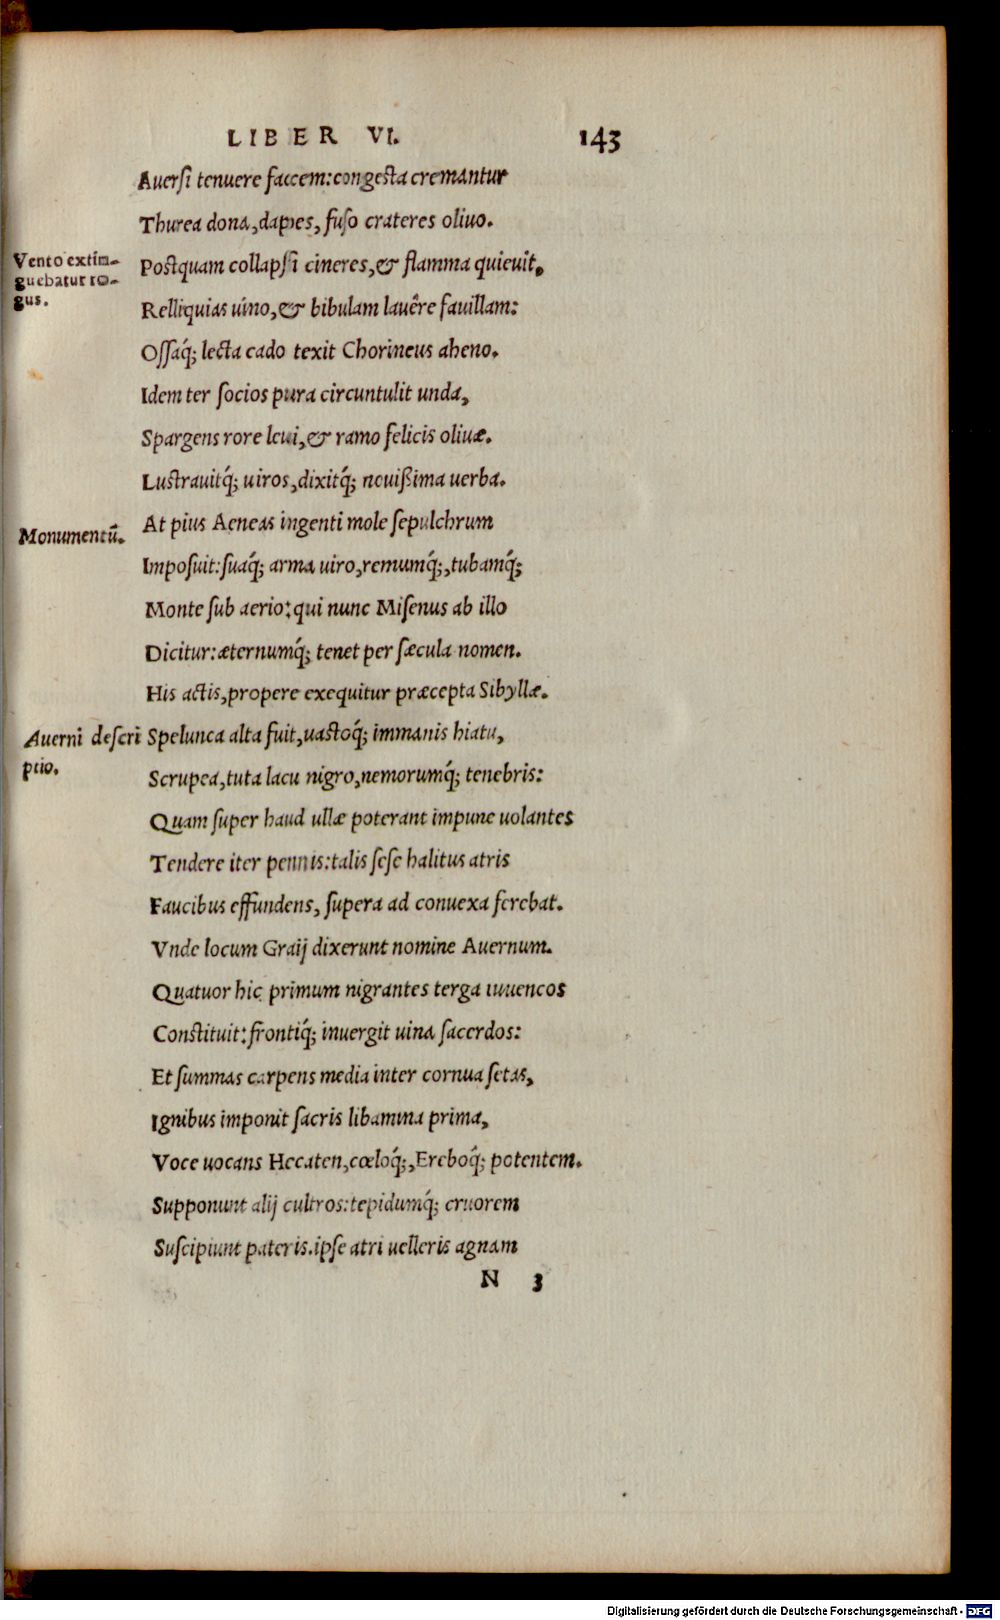 LIBER VI. 143
Auerſi tenuere faccem: congeſta cremantur
Thurea dona, dapes, fuſo crateres oliuo.
Vento extin-
guebatur ro-
gus.
Poſtquam collapſi cineres, & flamma quieuit,
Relliquias uino, & bibulam lauêre fauillam:
Oſſaq́; lecta cado texit Chorineus aheno.
Idem ter ſocios pura circuntulit unda,
Spargens rore leui, & ramo felicis oliuæ.
Luſtrauitq́; uiros, dixitq́; nouißima uerba.
Monumentũ.
At pius Aeneas ingenti mole ſepulchrum
Impoſuit: ſuaq́; arma uiro, remumq́;, tubamq́;
Monte ſub aerio: qui nunc Miſenus ab illo
Dicitur: æternumq́; tenet per ſæcula nomen.
His actis, propere exequitur præcepta Sibyllæ.
Auerni deſcri
ptio.
Spelunca alta fuit, uaſtoq́; immanis hiatu,
Scrupea, tuta lacu nigro, nemorumq́; tenebris:
Quam ſuper haud ullæ poterant impune uolantes
Tendere iter pennis: talis ſeſe halitus atris
Faucibus effundens, ſupera ad conuexa ferebat.
Vnde locum Graij dixerunt nomine Auernum.
Quatuor hic primum nigrantes terga iuuencos
Conſtituit: frontiq́; inuergit uina ſacerdos:
Et ſummas carpens media inter cornua ſetas,
Ignibus imponit ſacris libamina prima,
Voce uocans Hecaten, cœloq́;, Ereboq́; potentem.
Supponunt alij cultros: tepidumq́; cruorem
Suſcipiunt pateris. ipſe atri uelleris agnam
N 3
Digitalisierung gefördert durch die Deutsche Forschungsgemeinschaft - DFG